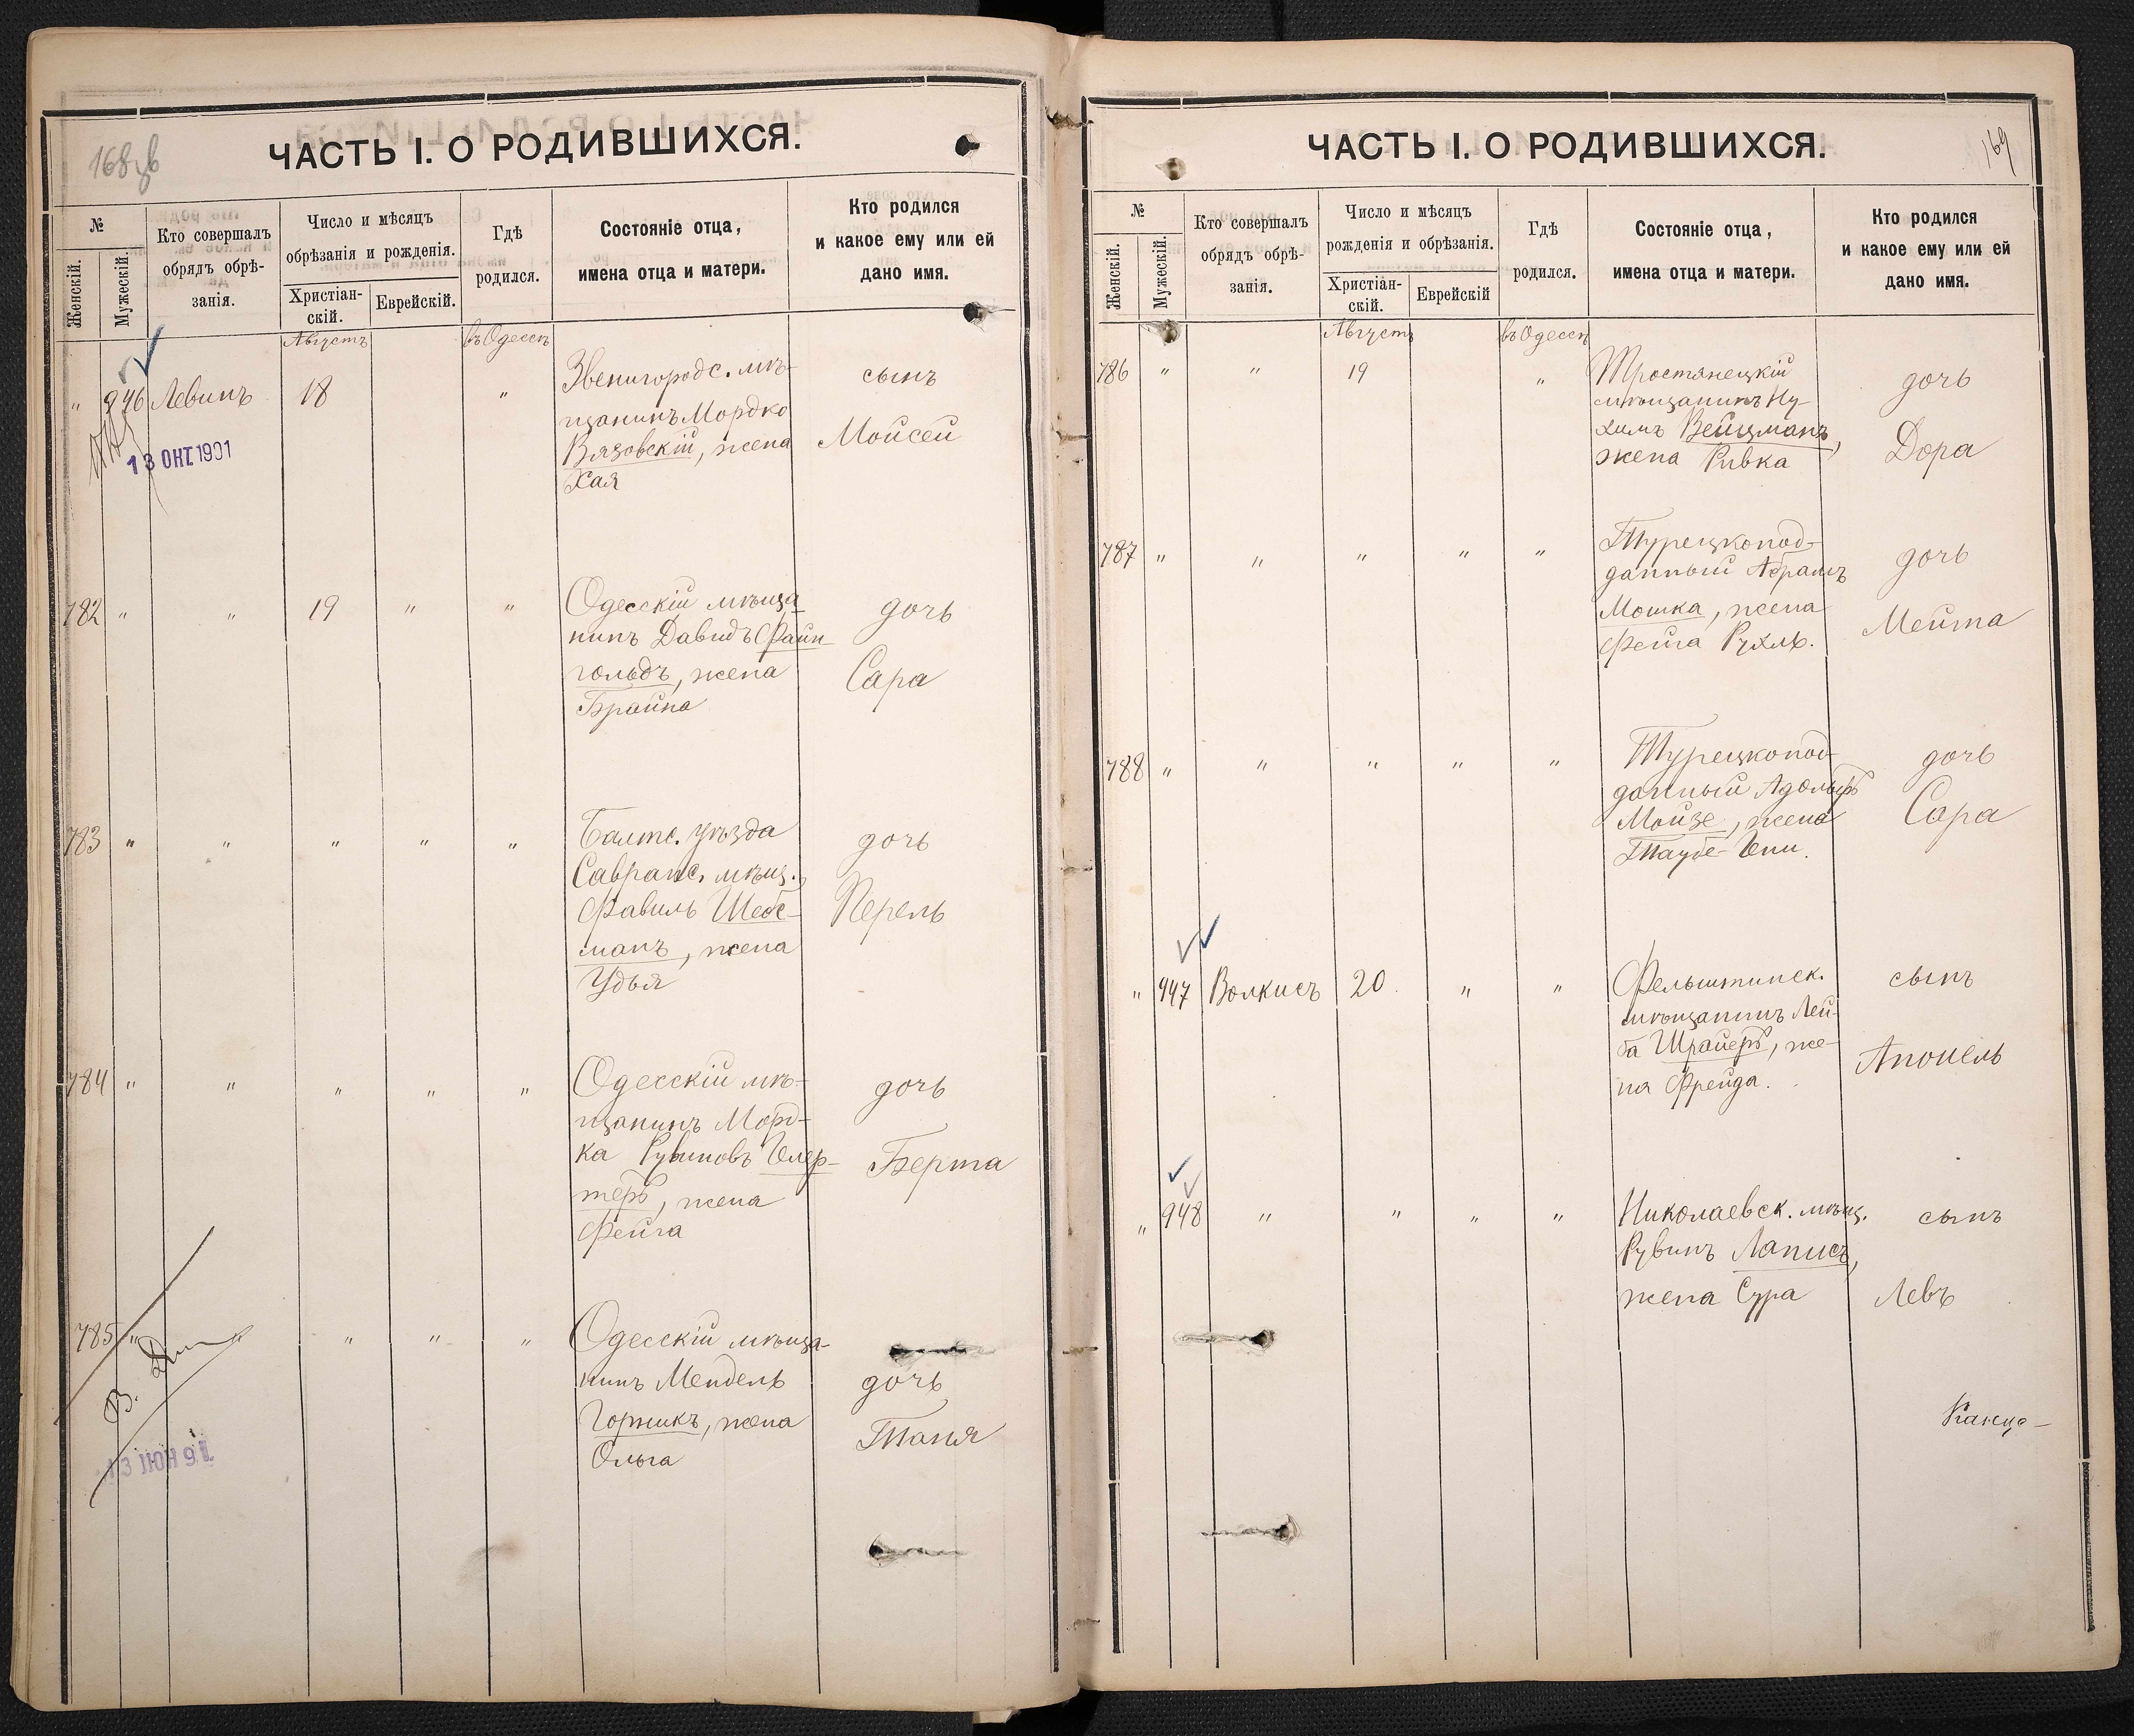 168 об
ЧАСТЬ I. О РОДИВШИХСЯ.
№
Женскій.
Мужескій.
Кто совершалъ
обрядъ обрѣ-
занія.
Число и мѣсяцъ
обрѣзанія и рожденія.
Христіан-
скій.
Еврейскій.
Гдѣ
родился.
Состояніе отца,
имена отца и матери.
Кто родился
и какое ему или ей
дано имя.
Августъ
въ Одессѣ
" 946 Левинъ 18 "
Звенигородс. мѣ-
щанинъ Мордко
Вязовскій, жена
Хая
сынъ
Мойсей
13 ОКТ 1901
782 " " 19 " "
Одесскій мѣща
нинъ Давидъ Файн
гольдъ, жена
Брайна
дочь
Сара
783 " " " " "
Балтс. уѣзда
Савранс. мѣщ.
Фавиль Шебс-
манъ, жена
Удья
дочь
Перель
784 " " " " "
Одесскій мѣ-
щанинъ Морд-
ка Рувиновъ Гелер-
теръ, жена
Фейга
дочь
Берта
785 " " " "
Одесскій мѣща-
нинъ Мендель
Горникъ, жена
Ольга
дочь
Таня
13 ІЮН 91
169
ЧАСТЬ I. О РОДИВШИХСЯ.
№
Женскій.
Мужескій.
Кто совершалъ
обрядъ обрѣ-
занія.
Число и мѣсяцъ
рожденія и обрѣзанія.
Христіан-
скій.
Еврейскій
Гдѣ
родился.
Состояніе отца,
имена отца и матери.
Кто родился
и какое ему или ей
дано имя.
Августъ
въ Одессѣ
786 " " 19 "
Тростянецкій
мѣщанинъ Ну-
химъ Вейцманъ,
жена Ривка
дочь
Дора
787 " " " " "
Турецкопод-
данный Абрамъ
Мошка, жена
Фейга Рухль.
дочь
Мейта
788 " " " " "
Турецкопод-
данный Адольфъ
Мойзе, жена
Таубе-Гени.
дочь
Сара
" 947 Волкисъ 20. " "
Фельштинск.
мѣщанинъ Лей-
ба Шрайеръ, же-
на Фрейда.
сынъ
Анонель
" 948 " " " "
Николаевск. мѣщ.
Рувинъ Лаписъ,
жена Сура
сынъ
Левъ